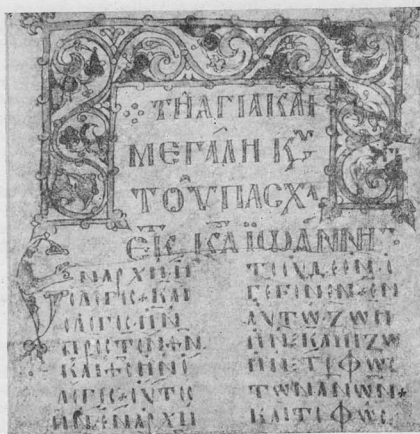 ΤΗ ΑΓΙΑ ΚΑΙ
ΜΕΓΑΛΗ ΚΥ
ΤΟΥ ΠΑϹΧΑ
ΕΚ ΚΑ ΙΩΑΝΝΗ
ΕΝ ΑΡΧΗ ΗΝ
Ο ΛΟΓΟϹ ΚΑΙ
Ο ΛΟΓΟϹ ΗΝ
ΠΡΟϹ ΤΟΝ ΘΝ
ΚΑΙ ΘϹ ΗΝ Ο
ΛΟΓΟϹ ΟΥΤΟϹ
ΗΝ ΕΝ ΑΡΧΗ
ΤΟΥ ΟΥΔΕ ΕΝ Ο
ΓΕΓΟΝΕΝ ΕΝ
ΑΥΤΩ ΖΩΗ
ΗΝ ΚΑΙ Η ΖΩ
Η ΗΝ ΤΟ ΦΩϹ
ΤΩΝ ΑΝΩΝ
ΚΑΙ ΤΟ ΦΩϹ